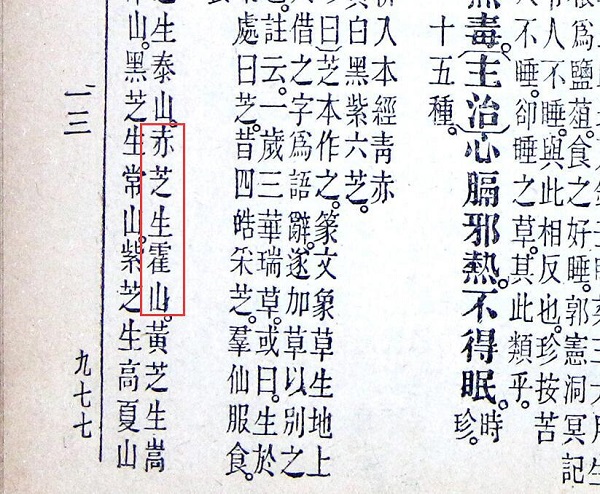 爲鹽葅食之好睡。郭憲洞冥記
人不睡。與此相反也。珍按苦
人不睡。卻睡之草。其此類乎。
毒。主治心膈邪熱。不得眠。時珍。
十五種。
入本經青赤
白黑紫六芝。
曰芝本作之。篆文象草生地上
人借之字爲語辭。遂加草以別之
也。註云。一歲三華瑞草。或曰。生於
處曰芝。昔四皓采芝。羣仙服食。
芝生泰山。赤芝生霍山。黃芝生嵩
山。黑芝生常山。紫芝生高夏山
一三
九七七